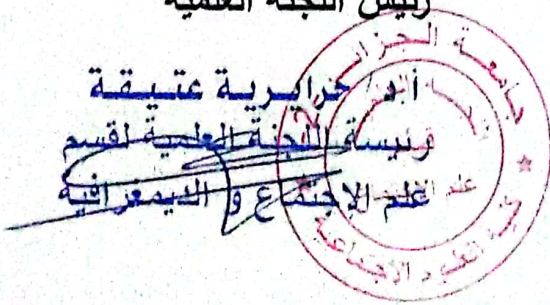 رئيس اللجنة العلمية
أ.د/ خرايرية عتيقة
رئيسة اللجنة العلمية لقسم
علم الاجتماع و الديمغرافية
جامعة الجزائر
كلية العلوم الاجتماعية